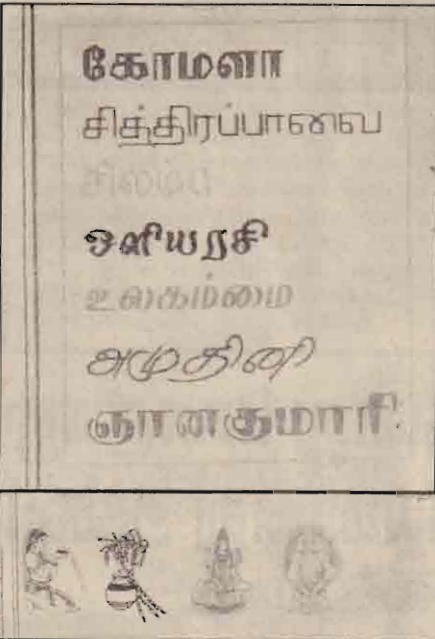 கோமளா
சித்திரப்பாவை
சிலம்பு
ஒளியரசி
உலகம்மை
அமுதினி
ஞானகுமாரி